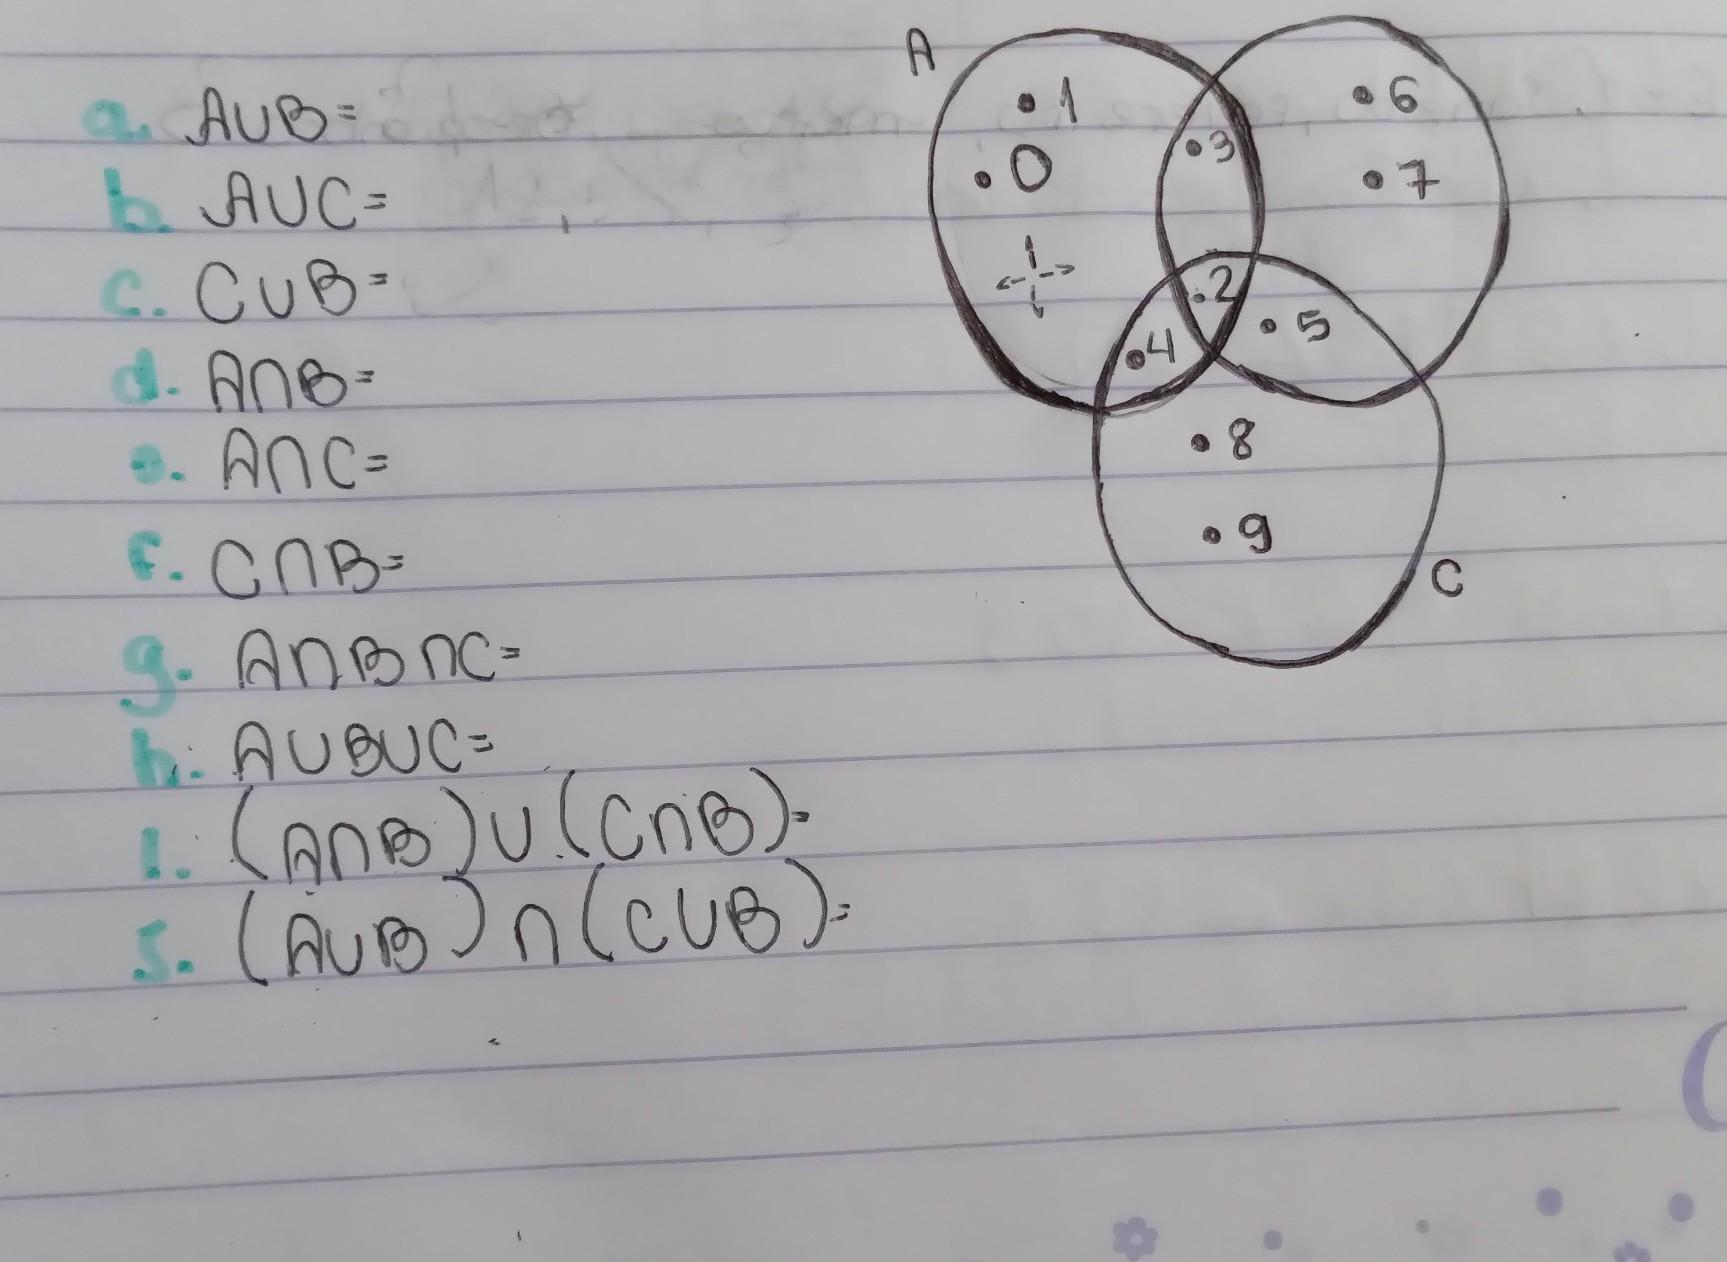 a. A∪B=
b. A∪C=
c. C∪B=
d. A∩B=
e. A∩C=
f. C∩B=
g. A∩B∩C=
h. A∪B∪C=
1. (A∩B)∪(C∩B)=
5. (A∪B)∩(C∪B)=
A
•1
•6
•3
•0
•7
•2
•5
•4
•8
•9
C